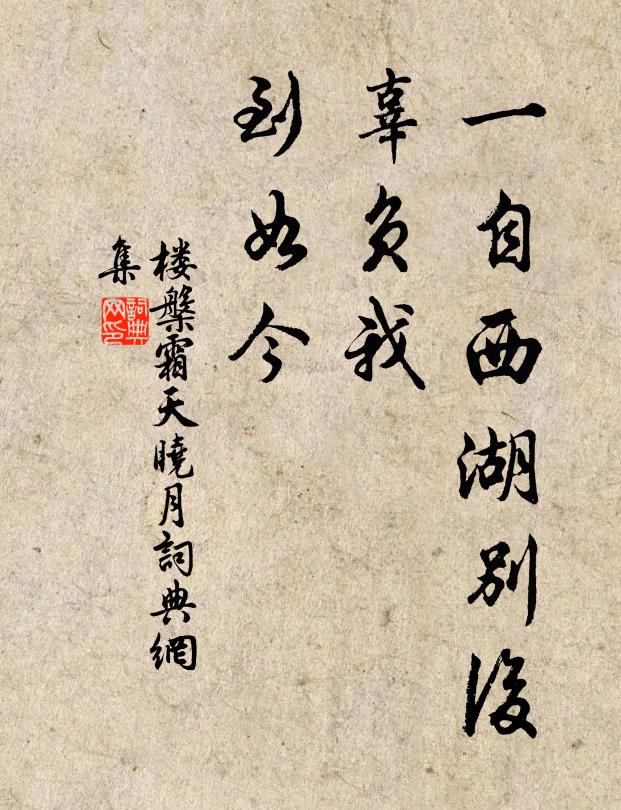 一自西湖別後
辜負我
到如今
楼槃霜天曉月詞典網
集
詞典
网印